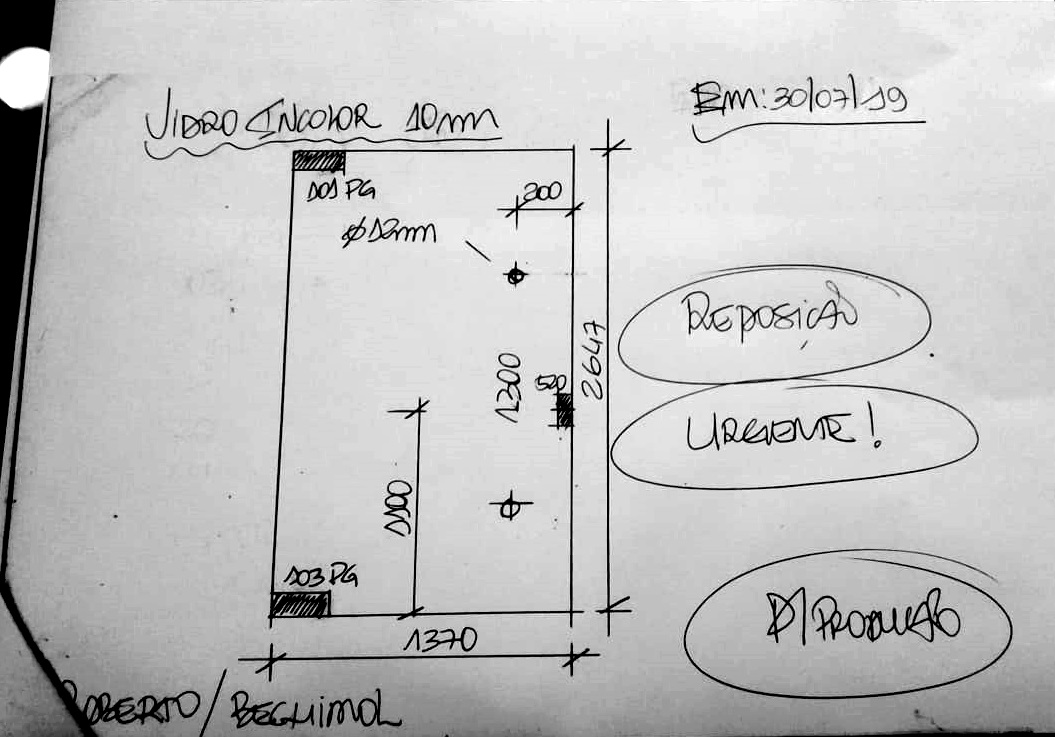 VIDRO INCOLOR 10mm
Em: 30/07/19
101 PG
200
Ø12mm
REPOSIÇÃO
2647
1300
520
URGENTE!
1100
103 PG
P/PRODUÇÃO
1370
ROBERTO / BECHIMOL